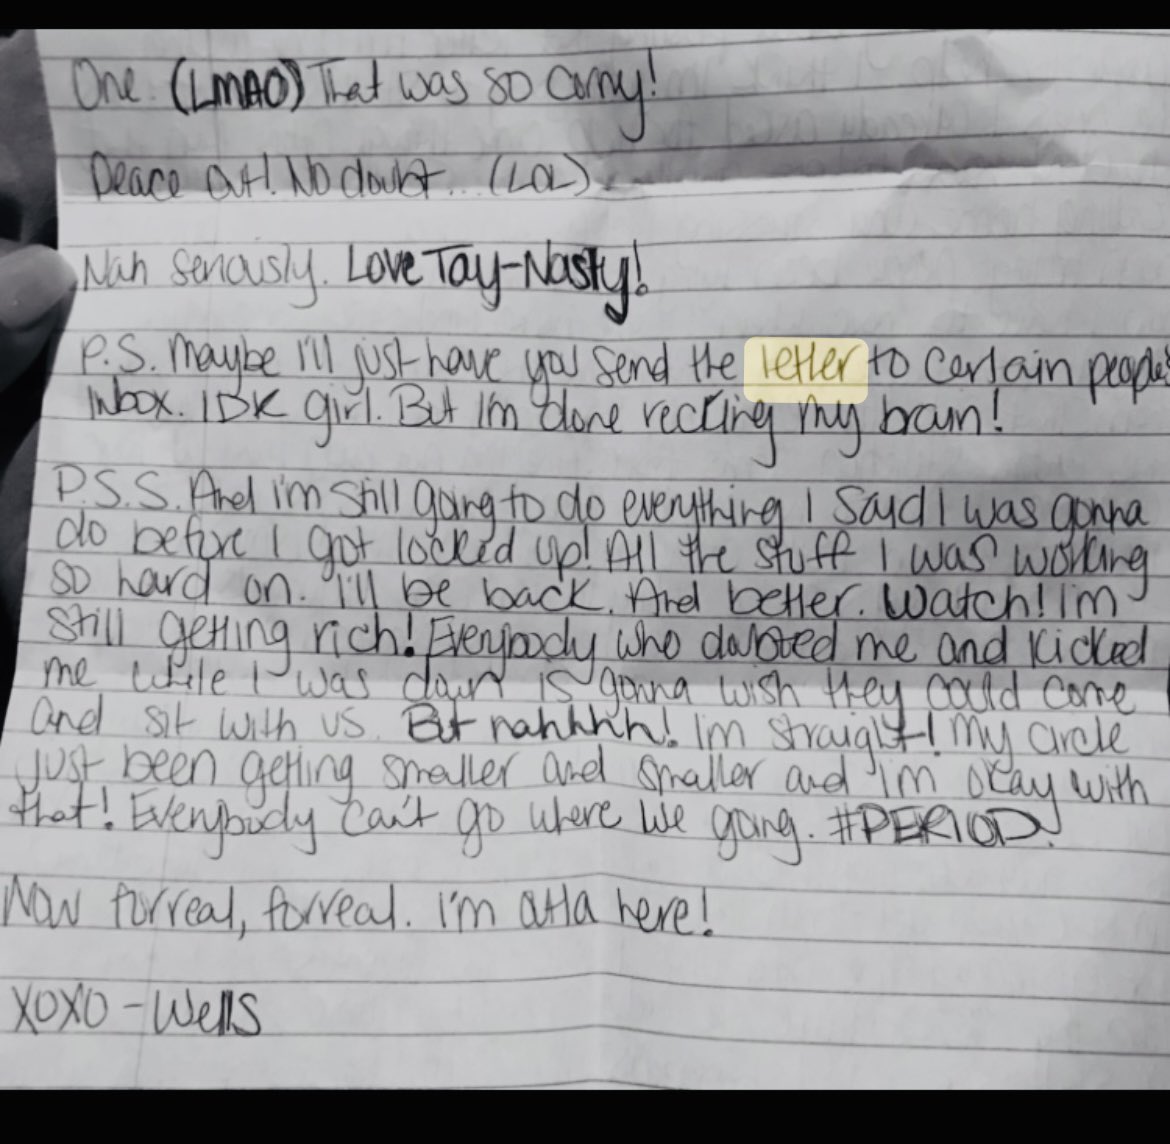 One. (LMAO) That was so corny!
Peace out! No doubt... (LOL)
Nah seriously. Love Tay-Nasty!
P.S. Maybe I'll just have you send the letter to certain people's
inbox. IDK girl. But I'm done recking my brain!
P.S.S. And I'm still going to do everything I said I was gonna
do before I got locked up! All the stuff I was working
so hard on. I'll be back. And better. Watch! I'm
still getting rich! Everybody who doubted me and kicked
me while I was down is gonna wish they could come
and sit with us. But nahhhh! I'm straight! My circle
just been getting smaller and smaller and I'm okay with
that! Everybody can't go where we going. #PERIOD!
Now forreal, forreal. I'm atta here!
XOXO - Wells